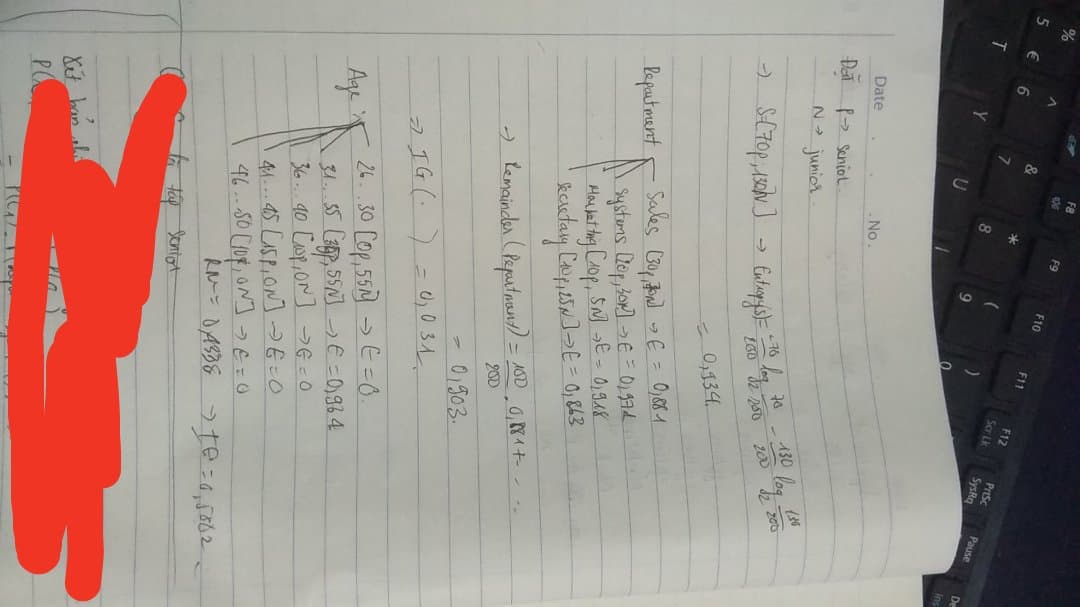 Date . . . No.
Đặt P → senior.
N → junior.
→ S[70P, 130N] → Entropy(S) = -70/200 log2 70/200 - 130/200 log2 130/200
= 0,934.
Department
Sales [30P, 70N] → E = 0,881
Systems [20P, 30N] → E = 0,971
Marketing [10P, 5N] → E = 0,918
Secretary [10P, 25N] → E = 0,863
→ Remainder (Department) = 100/200 . 0,881 + ...
= 0,903.
→ IG ( . ) = 0,031.
Age
26..30 [0P, 55N] → E = 0.
31..35 [35P, 55N] → E = 0,964
36..40 [10P, 0N] → E = 0
41...45 [15P, 0N] → E = 0
46..50 [10P, 0N] → E = 0
RM = 0,4338 →
senior
Xét
P(
% 5 € ^ 6 & 7 * 8 ( 9 ) 0
T Y U I
F8 F9 F10 F11 F12 Scr Lk PrtSc SysRq Pause